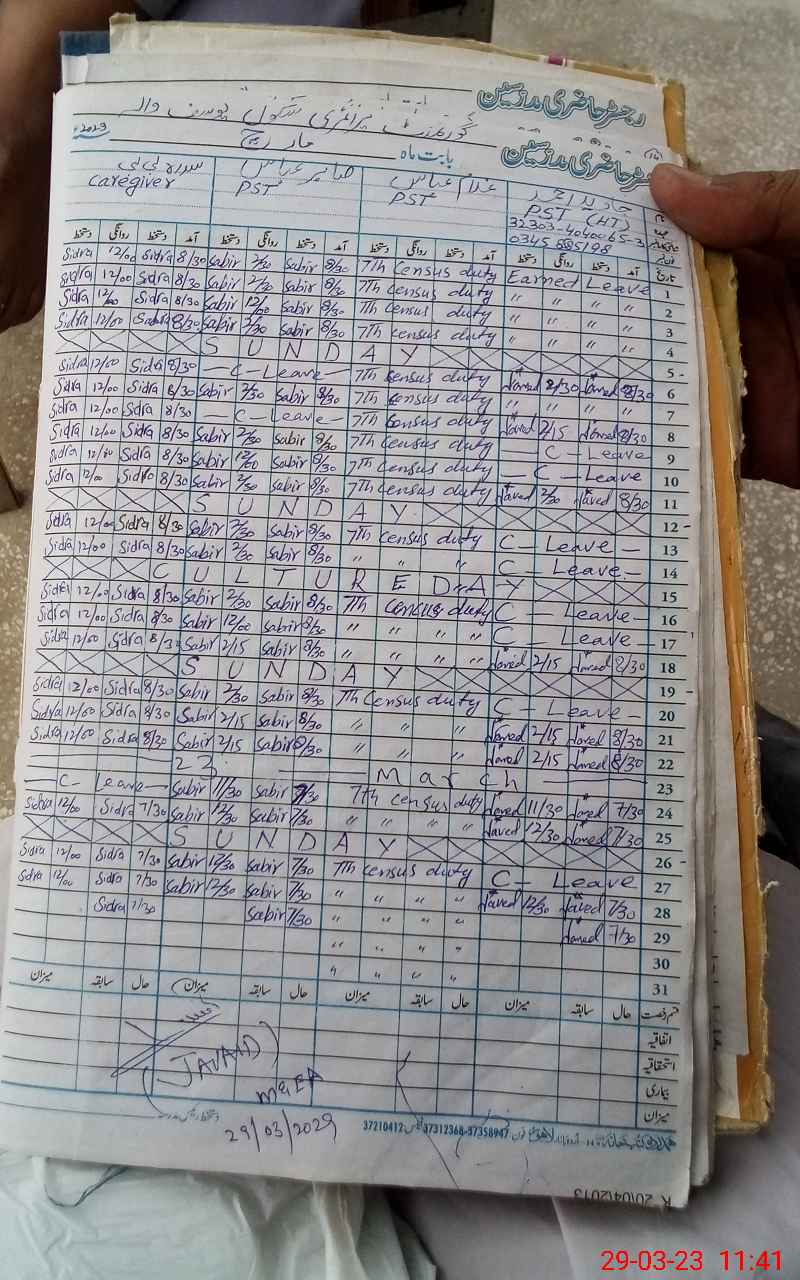 رجسٹر حاضری مدرسین
گورنمنٹ پرائمری سکول یوسف والہ
رجسٹر حاضری مدرسین
بابت ماہ مارچ 2023ء
جاوید احمد غلام عباس صابر عباس سدرہ بی بی
PST (HT) PST PST caregiver
32303-4040065-3
تاریخ آمد دستخط روانگی دستخط آمد دستخط روانگی دستخط آمد دستخط روانگی دستخط آمد دستخط روانگی دستخط
Sidra 12/00 Sidra 8/30 Sabir 2/30 Sabir 8/30 7th Census duty Earned Leave 1
Sidra 12/00 Sidra 8/30 Sabir 2/30 Sabir 8/30 7th Census duty " " " " 2
Sidra 12/00 Sidra 8/30 Sabir 12/00 Sabir 8/30 7th Census duty " " " " 3
Sidra 12/00 Sidra 8/30 Sabir 2/30 Sabir 8/30 7th Census duty " " " " 4
S U N D A Y 5
Sidra 12/00 Sidra 8/30 — C - Leave — 7th Census duty Javed 2/30 Javed 8/30 6
Sidra 12/00 Sidra 8/30 Sabir 2/30 Sabir 8/30 7th Census duty " " " " 7
Sidra 12/00 Sidra 8/30 — C - Leave — 7th Census duty Javed 2/15 Javed 8/30 8
Sidra 12/00 Sidra 8/30 Sabir 2/30 Sabir 8/30 7th Census duty — C — Leave 9
Sidra 12/00 Sidra 8/30 Sabir 12/00 Sabir 8/30 7th Census duty — C — Leave 10
Sidra 12/00 Sidra 8/30 Sabir 2/30 Sabir 8/30 7th Census duty Javed 2/30 Javed 8/30 11
S U N D A Y 12
Sidra 12/00 Sidra 8/30 Sabir 2/30 Sabir 8/30 7th Census duty C — Leave — 13
Sidra 12/00 Sidra 8/30 Sabir 2/30 Sabir 8/30 " " " C — Leave — 14
C U L T U R E D A Y 15
Sidra 12/00 Sidra 8/30 Sabir 2/30 Sabir 8/30 7th Census duty C — Leave — 16
Sidra 12/00 Sidra 8/30 Sabir 12/00 Sabir 8/30 " " " " C — Leave — 17
Sidra 12/00 Sidra 8/30 Sabir 2/15 Sabir 8/30 " " " " Javed 2/15 Javed 8/30 18
S U N D A Y 19
Sidra 12/00 Sidra 8/30 Sabir 2/30 Sabir 8/30 7th Census duty C — Leave — 20
Sidra 12/00 Sidra 8/30 Sabir 2/15 Sabir 8/30 " " " Javed 2/15 Javed 8/30 21
Sidra 12/00 Sidra 8/30 Sabir 2/15 Sabir 8/30 " " " Javed 2/15 Javed 8/30 22
23 — March — 23
— C Leave — Sabir 11/30 Sabir 7/30 7th Census duty Javed 11/30 Javed 7/30 24
Sidra 12/00 Sidra 7/30 Sabir 12/30 Sabir 7/30 " " " " Javed 12/30 Javed 7/30 25
S U N D A Y 26
Sidra 12/00 Sidra 7/30 Sabir 12/30 Sabir 7/30 7th Census duty C — Leave 27
Sidra 12/00 Sidra 7/30 Sabir 12/30 Sabir 7/30 " " " " Javed 12/30 Javed 7/30 28
Sidra 7/30 Sabir 7/30 " " " " Javed 7/30 29
" " " " 30
" " " " 31
قسم رخصت حال سابقہ میزان حال سابقہ میزان حال سابقہ میزان حال سابقہ میزان
اتفاقیہ
استحقاقیہ
بیماری
میزان
(JAVAID)
MEEA
29/03/2023
37210412 37312368-37358947
K 20/04/2013
29-03-23 11:41